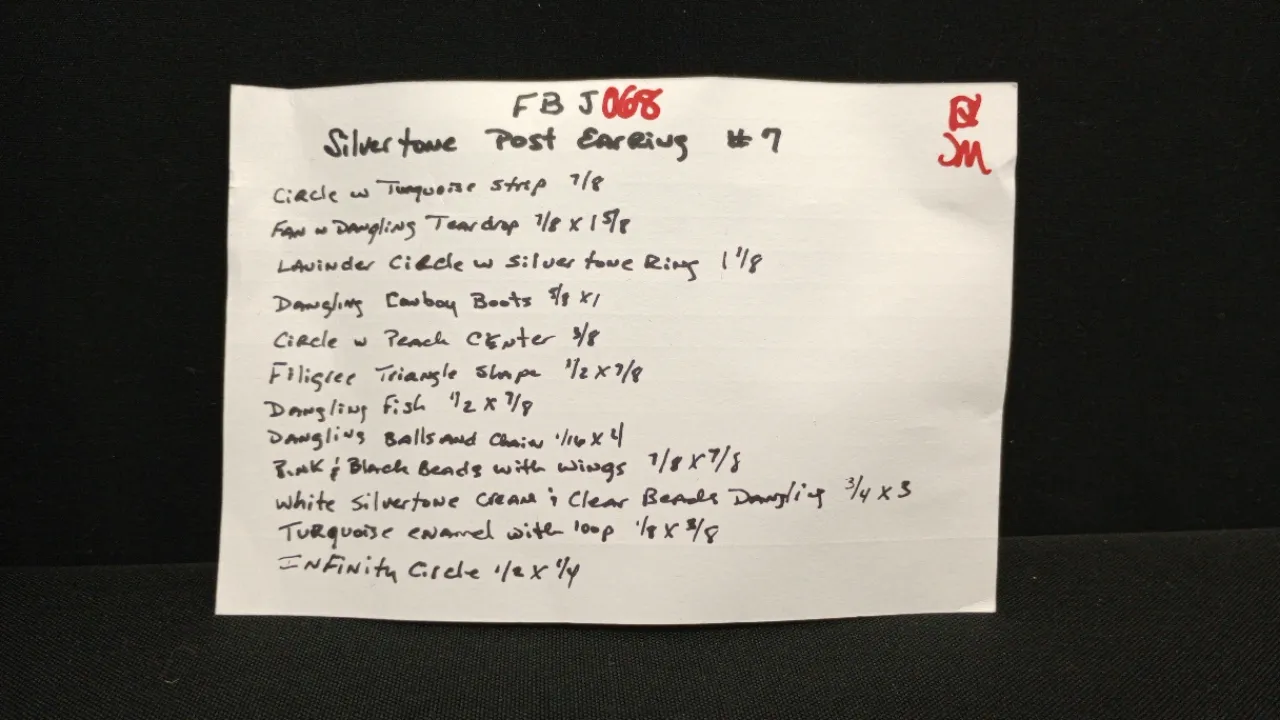 FBJ068
Silvertone Post Earring #7
JM
Circle w Turquoise Strip 7/8
Fan w Dangling Teardrop 7/8 x 1 5/8
Lavinder Circle w Silvertone Ring 1 1/8
Dangling Cowboy Boots 5/8 x 1
Circle w Peach Center 3/8
Filigree Triangle Shape 1/2 x 7/8
Dangling Fish 1/2 x 7/8
Dangling Balls and Chain 1/16 x
Pink & Black Beads with wings 7/8 x 7/8
White Silvertone Cream & Clear Beads Dangling 3/4 x 3
Turquoise enamel with loop 1/8 x 3/8
Infinity Circle 1/2 x 1/4